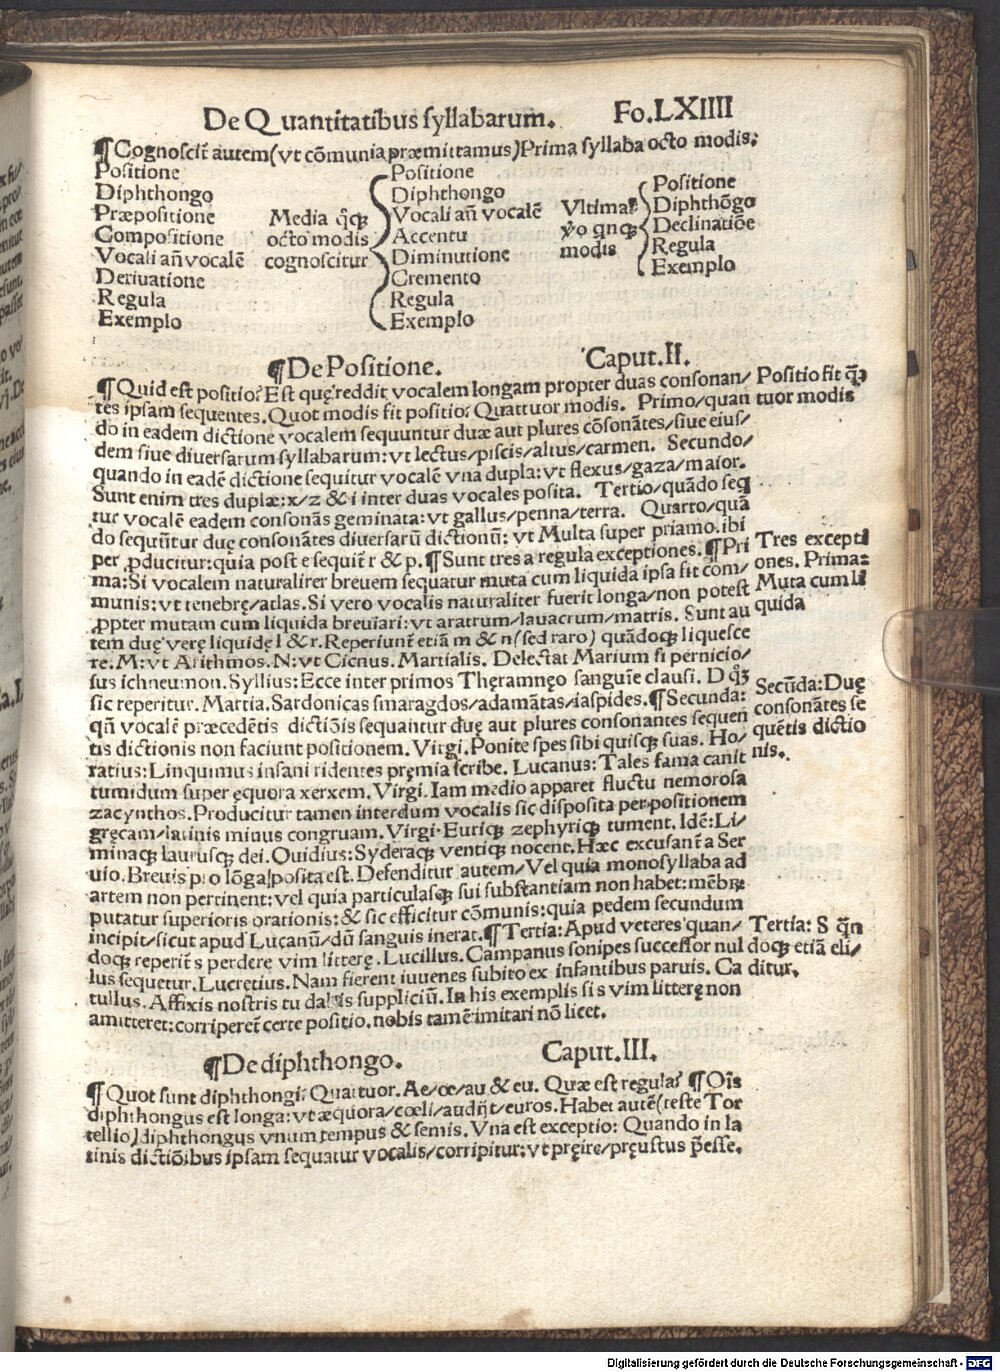 De Quantitatibus syllabarum. Fo.LXIIII
¶Cognoscit̃ autem(vt cõmunia præmittamus)Prima syllaba octo modis:
Positione
Diphthongo
Præpositione
Compositione
Vocali añ vocalẽ
Deriuatione
Regula
Exemplo
Media q̃qȝ
octo modis
cognoscitur
Positione
Diphthongo
Vocali añ vocalẽ
Accentu
Diminutione
Cremento
Regula
Exemplo
Vltimaꝝ
ỹo qnqȝ
modis
Positione
Diphthõgo
Declinatiõe
Regula
Exemplo
¶De Positione. Caput.II.
¶Quid est positio? Est quę reddit vocalem longam propter duas consonan/
tes ipsam sequentes.Quot modis fit positio? Quattuor modis. Primo/quan
do in eadem dictione vocalem sequuntur duæ aut plures cõsonãtes/siue eius/
dem siue diuersarum syllabarum:vt lectus/piscis/altus/carmen. Secundo/
quando in eadẽ dictione sequitur vocalẽ vna dupla:vt flexus/gaza/maior.
Sunt enim tres duplæ:x/z & i inter duas vocales posita. Tertio/quãdo seq
tur vocalẽ eadem consonãs geminata:vt gallus/penna/terra. Quarto/quã
do sequũtur duę consonãtes diuersarũ dictionũ: vt Multa super priamo.ibi
per ꝓducitur:quia post e sequit̃ r & p.¶Sunt tres a regula exceptiones.¶Pri
ma:Si vocalem naturalirer breuem sequatur muta cum liquida ipsa fit com/
munis:vt tenebrę/atlas.Si vero vocalis naturaliter fuerit longa/non potest
ꝓpter mutam cum liquida breuiari:vt aratrum/lauacrum/matris. Sunt au
tem duę verę liquidę l & r.Reperiunt̃ etiã m & n(sed raro) quãdoqȝ liquesce
re.M:vt Arithmos.N:vt Cicnus.Martialis. Delectat Marium si pernicio/
sus ichneumon.Syllius:Ecce inter primos Thęramnęo sanguie clausi. D q̃ȝ
sic reperitur.Martia.Sardonicas smaragdos/adamãtas/iaspides.¶Secunda:
qñ vocalẽ præcedẽtis dictiõis sequantur duę aut plures consonantes sequen
tis dictionis non faciunt positionem. Virgi.Ponite spes sibi quisqȝ suas. Ho/
ratius:Linquimus insani ridentes pręmia scribe. Lucanus:Tales fama canit
tumidum super ęquora xerxem.Virgi.Iam medio apparet fluctu nemorosa
zacynthos.Producitur tamen interdum vocalis sic disposita per positionem
gręcam/latinis minus congruam.Virgi.Euriqȝ zephyriqȝ tument.Idẽ:Li/
minaqȝ laurusqȝ dei.Ouidius:Syderaqȝ ventiqȝ nocent.Hæc excusant̃ a Ser
uio.Breuis pro lõga posita est.Defenditur autem/Vel quia monosyllaba ad
artem non pertinent:vel quia particulasqȝ sui substantiam non habet:mẽbrꝝ
putatur superioris orationis:& sic efficitur cõmunis:quia pedem secundum
incipit/sicut apud Lucanũ/dũ sanguis inerat.¶Tertia:Apud veteres quan/
doqȝ reperit̃ s perdere vim litterę.Lucillus.Campanus sonipes successor nul
lus sequetur.Lucretius.Nam fierent iuuenes subito ex infantibus paruis. Ca
tullus.Affixis nostris tu dabis suppliciũ.In his exemplis si s vim litterę non
amitteret:corriperet̃ certe positio.nobis tamẽ imitari nõ licet.
Positio fit q̃ȝ
tuor modis
Tres excepti
ones. Prima:
Muta cum li
quida
Secũda:Duę
consonãtes se
quẽtis dictio
nis.
Tertia: S qñ
doqȝ etiã eli/
ditur.
¶De diphthongo. Caput.III.
¶Quot sunt diphthongi? Quattuor. Ae/œ/au & eu. Quæ est regula? ¶Oĩs
diphthongus est longa:vt æquora/cœli/audijt/euros.Habet autẽ(teste Tor
tellio)diphthongus vnum tempus & semis.Vna est exceptio: Quando in la
tinis dictiõibus ipsam sequatur vocalis/corripitur:vt pręire/pręustus p̃esse.
Digitalisierung gefördert durch die Deutsche Forschungsgemeinschaft - DFG